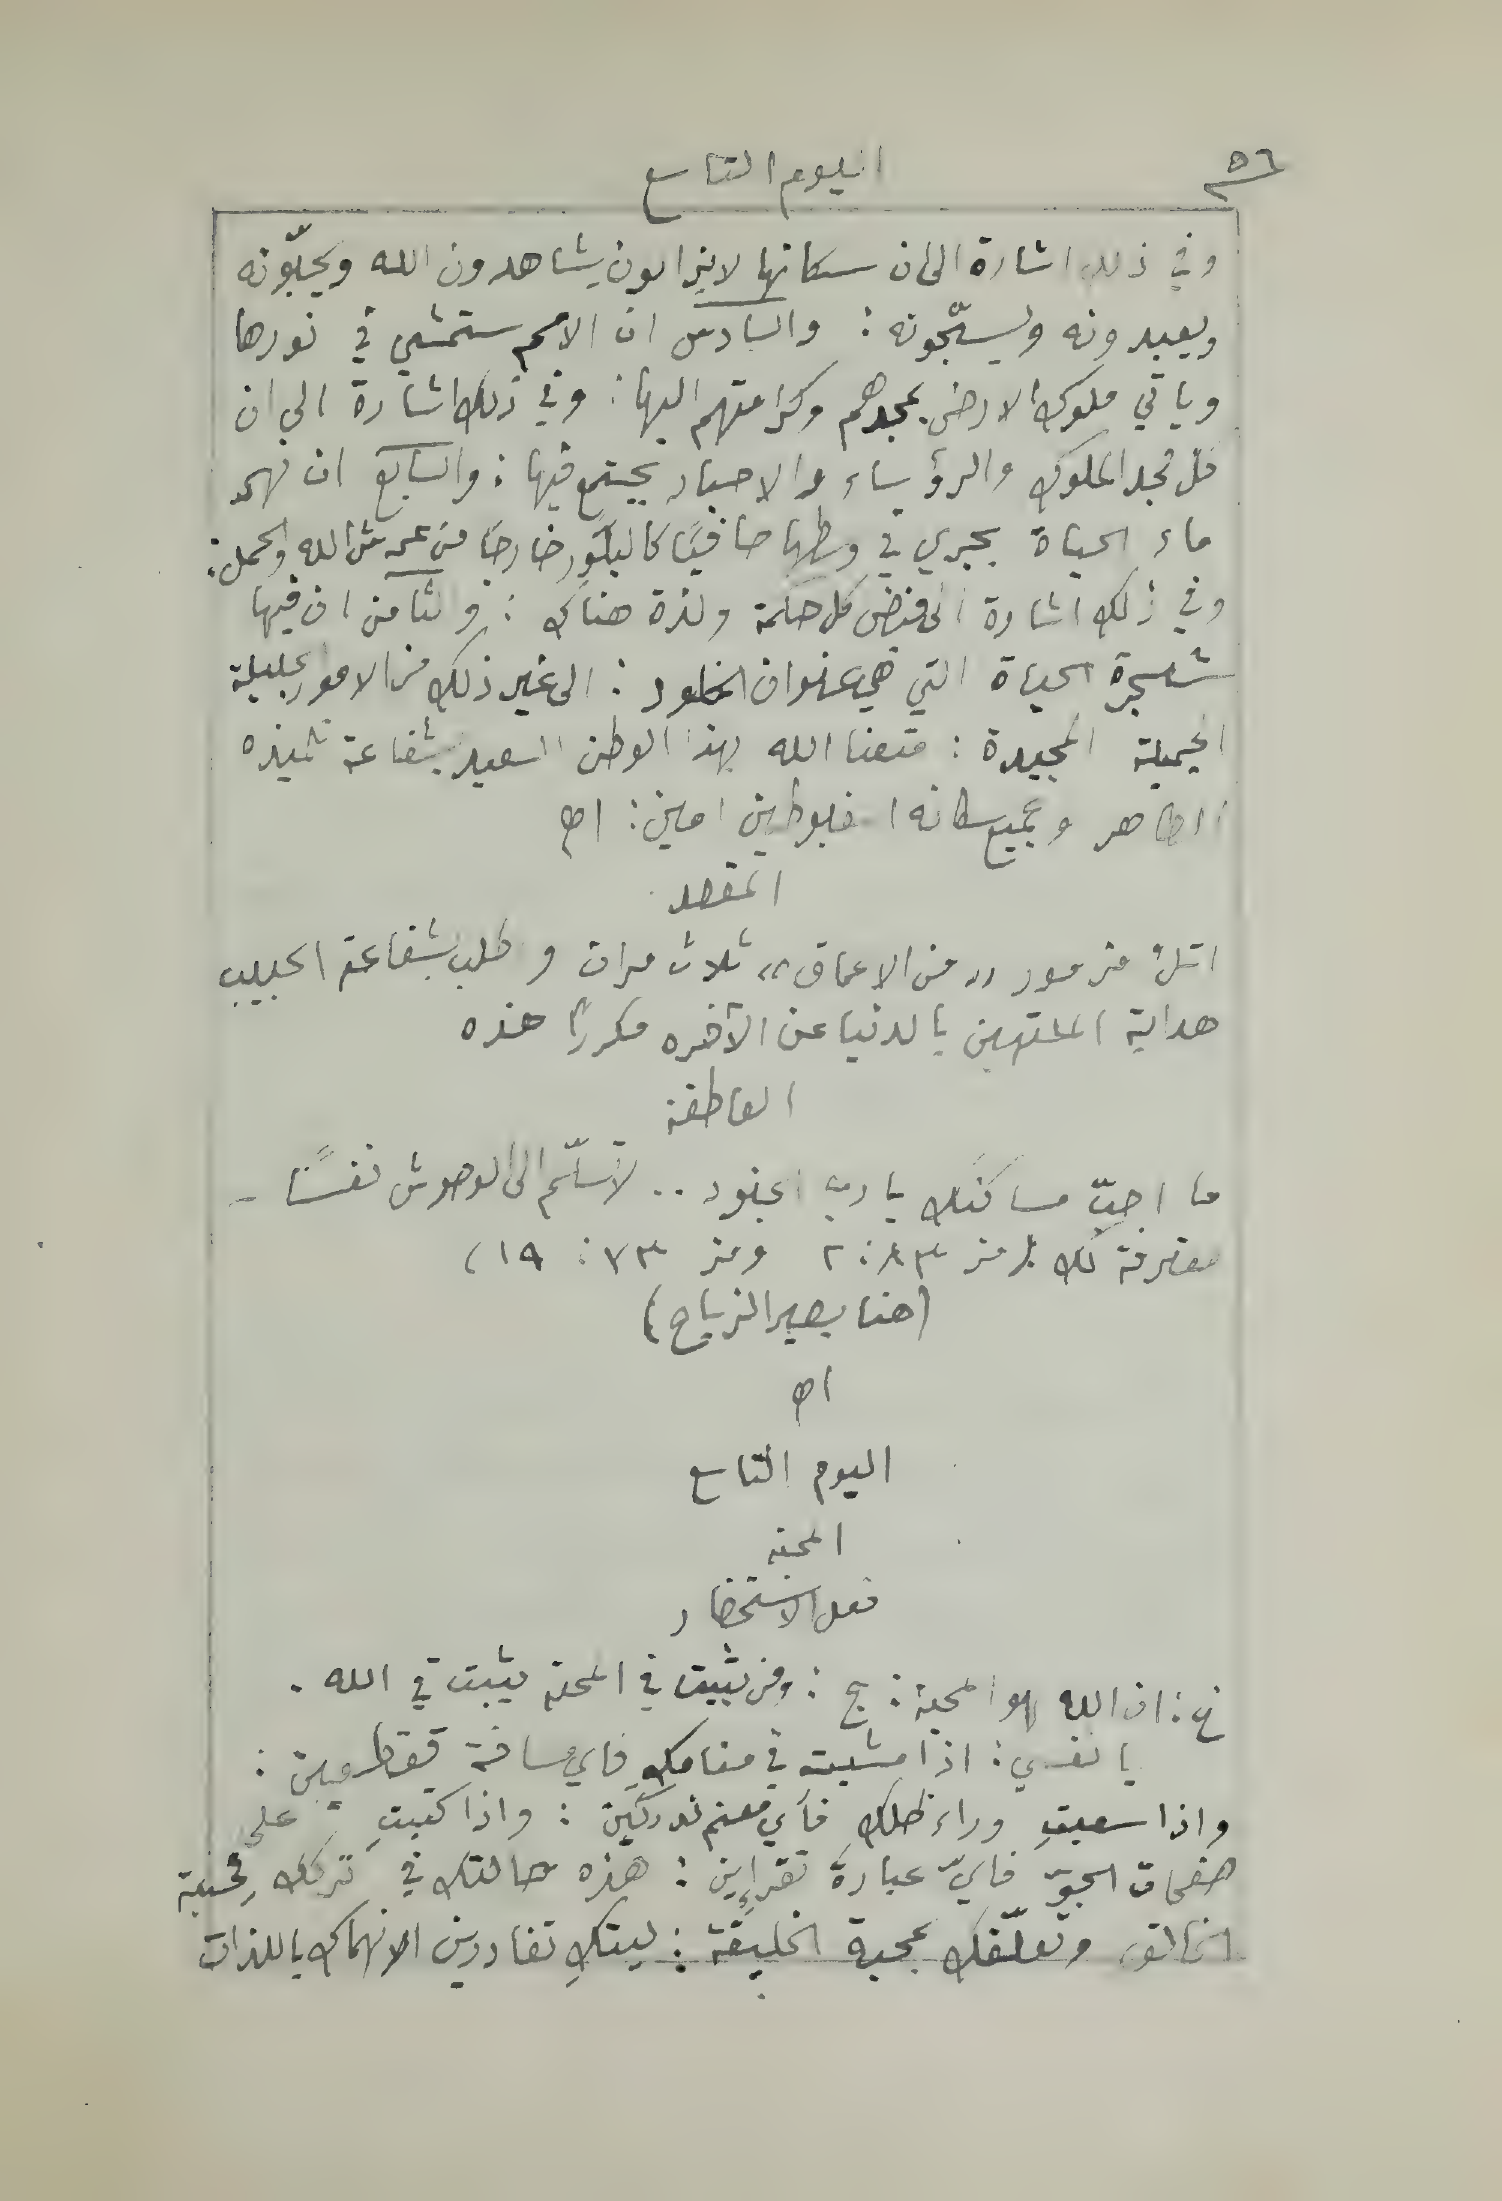 ٥٦ اليوم التاسع
وفي ذلك اشارة الى ان سكانها لا يزالون يشاهدون الله ويحبّونه
ويعبدونه ويسبّحونه : والسادس ان الامم ستمشي في نورها
وياتي ملوك الارض بمجدهم وكرامتهم اليها : وفي ذلك اشارة الى ان
كل مجد الملوك والرؤساء والاحبار يجتمع فيها : والسابع ان نهر
ماء الحياة يجري في وسطها صافيًا كالبلّور خارجًا من عرش الله والحمل :
وفي ذلك اشارة الى فيض كل حكمة ولذة هناك : والثامن ان فيها
شجرة الحياة التي هي عنوان الخلود : الى غير ذلك من الامور الجليلة
الجميلة المجيدة : متعنا الله بهذا الوطن السعيد بشفاعة تلميذه
الطاهر وجميع سكانه المغبوطين امين : اهـ
المقصد
اتلُ مزمور ,, من الاعماق ,, ثلاث مرات واطلب بشفاعة الحبيب
هداية الملتهين بالدنيا عن الآخره مكررًا هذه
العاطفة
ما احبّ مساكنَك يا ربّ الجنود .. لا تسلّم الى الوحوش نفسًا -
معترفة لك : (مز ٨٣ : ٢ ومز ٧٣ : ١٩)
(هنا يصير الزياح)
اهـ
اليوم التاسع
المحبة
فعل الاستحضار
خ : ان الله هو المحبة : ج : ومن يثبت في المحبة يثبت في الله .
يا نفسي : اذا مشيتِ في منامكِ فاي مسافة تقطعين :
واذا سعيتِ وراء ظلك فأي مغنم تدركين : واذا كتبتِ على
صفحات الجوّ فايّ عبارة تقراين : هذه حالتك في تركك محبة
الخالق وتعلّقك بمحبة الخليقة : ليتكِ تغادرين الانهماك باللذات